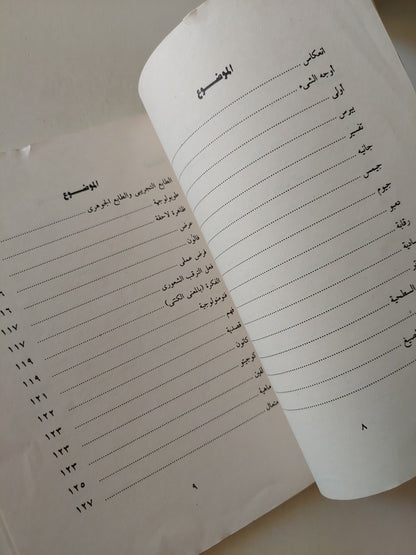 الموضوع
انعكاس
أوجه الشيء
أولى
بيرس
تفسير
جانب
جيمس
جيوم
حصر
رقابة
السطحية
٨
الموضوع
الطابع التجريبى والطابع الجوهرى
طوبولوجية
ظاهرة لاحقة
عرض
قانون
فرض عملى
فعل الترقب الشعورى
الفكرة (بالمعنى الكنتى)
فنومنولوجية
فهم
قصدية
كانون
كوجيتو
ماهية
متعال
١٦
١١٧
١١٧
١١٩
١١٩
١٢١
١٢٢
١٢٣
١٢٣
١٢٣
١٢٥
١٢٧
٩